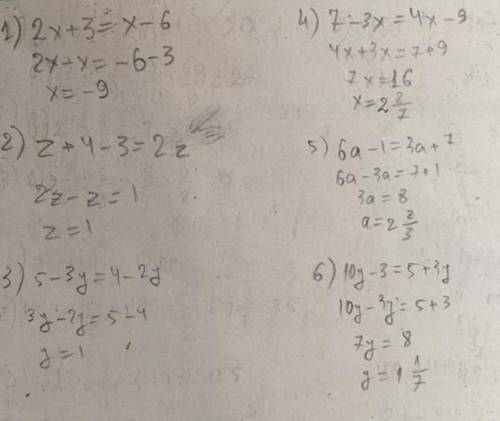 1) 2x+3=x-6
2x-x=-6-3
x=-9
2) z+4-3=2z
2z-z=1
z=1
3) 5-3y=4-2y
3y-2y=5-4
y=1
4) 7-3x=4x-9
4x+3x=7+9
7x=16
x=2 2/7
5) 6a-1=3a+7
6a-3a=7+1
3a=8
a=2 2/3
6) 10y-3=5+3y
10y-3y=5+3
7y=8
y=1 1/7